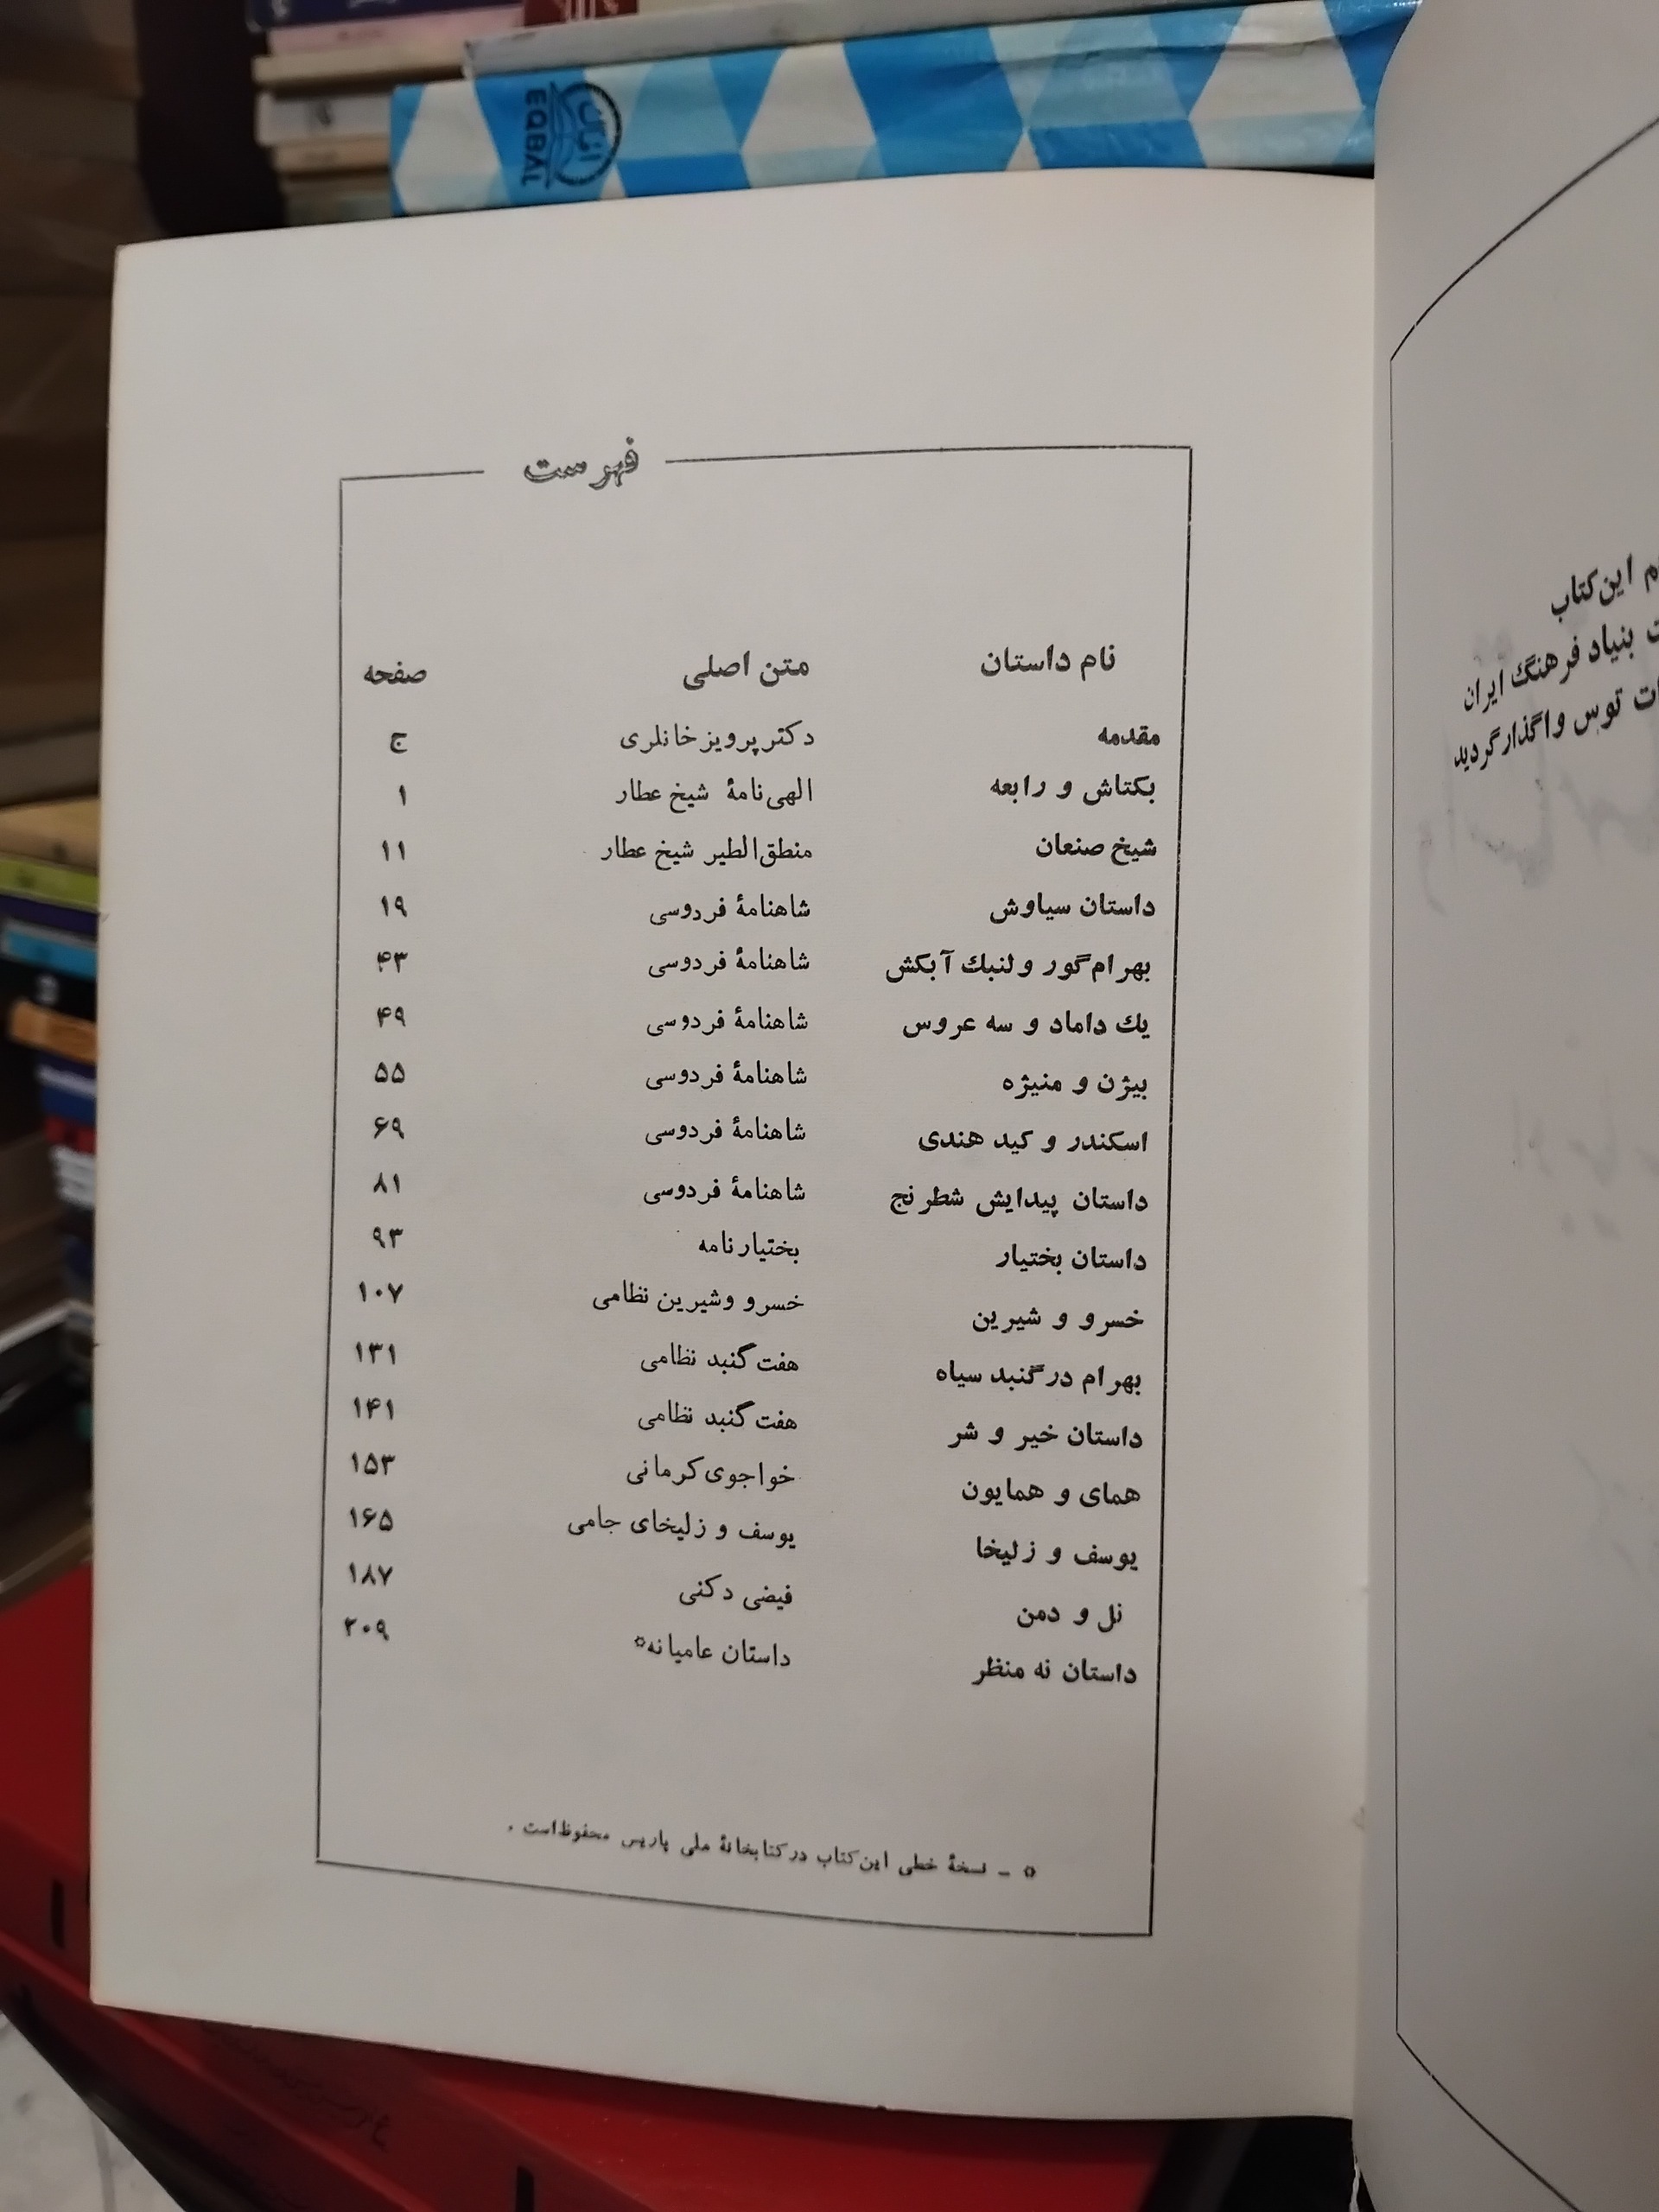 EQBAL
فهرست
نام داستان متن اصلی صفحه
مقدمه دکتر پرویز خانلری ج
بکتاش و رابعه الهی‌نامهٔ شیخ عطار ۱
شیخ صنعان منطق‌الطیر شیخ عطار ۱۱
داستان سیاوش شاهنامهٔ فردوسی ۱۹
بهرام‌گور و لنبك آبکش شاهنامهٔ فردوسی ۴۳
یك داماد و سه عروس شاهنامهٔ فردوسی ۴۹
بیژن و منیژه شاهنامهٔ فردوسی ۵۵
اسکندر و کید هندی شاهنامهٔ فردوسی ۶۹
داستان پیدایش شطرنج شاهنامهٔ فردوسی ۸۱
داستان بختیار بختیارنامه ۹۳
خسرو و شیرین خسرو وشیرین نظامی ۱۰۷
بهرام در گنبد سیاه هفت‌گنبد نظامی ۱۳۱
داستان خیر و شر هفت‌گنبد نظامی ۱۴۱
همای و همایون خواجوی کرمانی ۱۵۳
یوسف و زلیخا یوسف و زلیخای جامی ۱۶۵
نل و دمن فیضی دکنی ۱۸۷
داستان نه منظر داستان عامیانه* ۲۰۹
* - نسخهٔ خطی این‌کتاب در کتابخانهٔ ملی پاریس محفوظ‌است .
این‌کتاب
بنیاد فرهنگ ایران
توس واگذار گردید